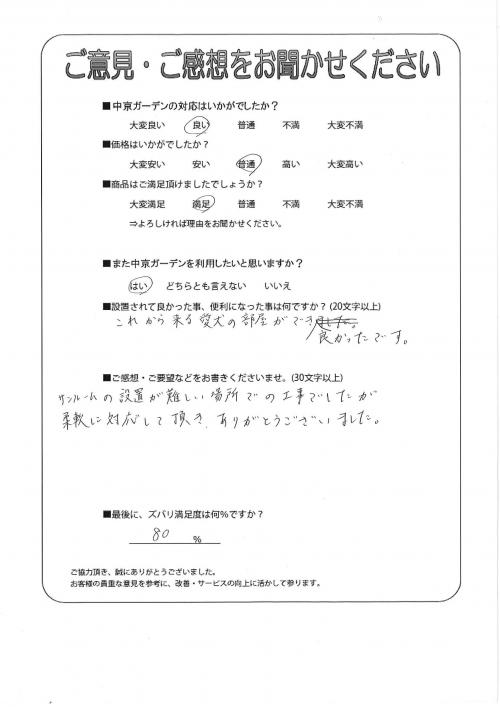 ご意見・ご感想をお聞かせください
■中京ガーデンの対応はいかがでしたか？
大変良い 良い 普通 不満 大変不満
■価格はいかがでしたか？
大変安い 安い 普通 高い 大変高い
■商品はご満足頂けましたでしょうか？
大変満足 満足 普通 不満 大変不満
⇒よろしければ理由をお聞かせください。
■また中京ガーデンを利用したいと思いますか？
はい どちらとも言えない いいえ
■設置されて良かった事、便利になった事は何ですか？(20文字以上)
これから来る愛犬の部屋ができ
良かったです。
■ご感想・ご要望などをお書きくださいませ。(30文字以上)
サンルームの設置が難しい場所での工事でしたが
柔軟に対応して頂き、ありがとうございました。
■最後に、ズバリ満足度は何％ですか？
80 ％
ご協力頂き、誠にありがとうございました。
お客様の貴重な意見を参考に、改善・サービスの向上に活かして参ります。